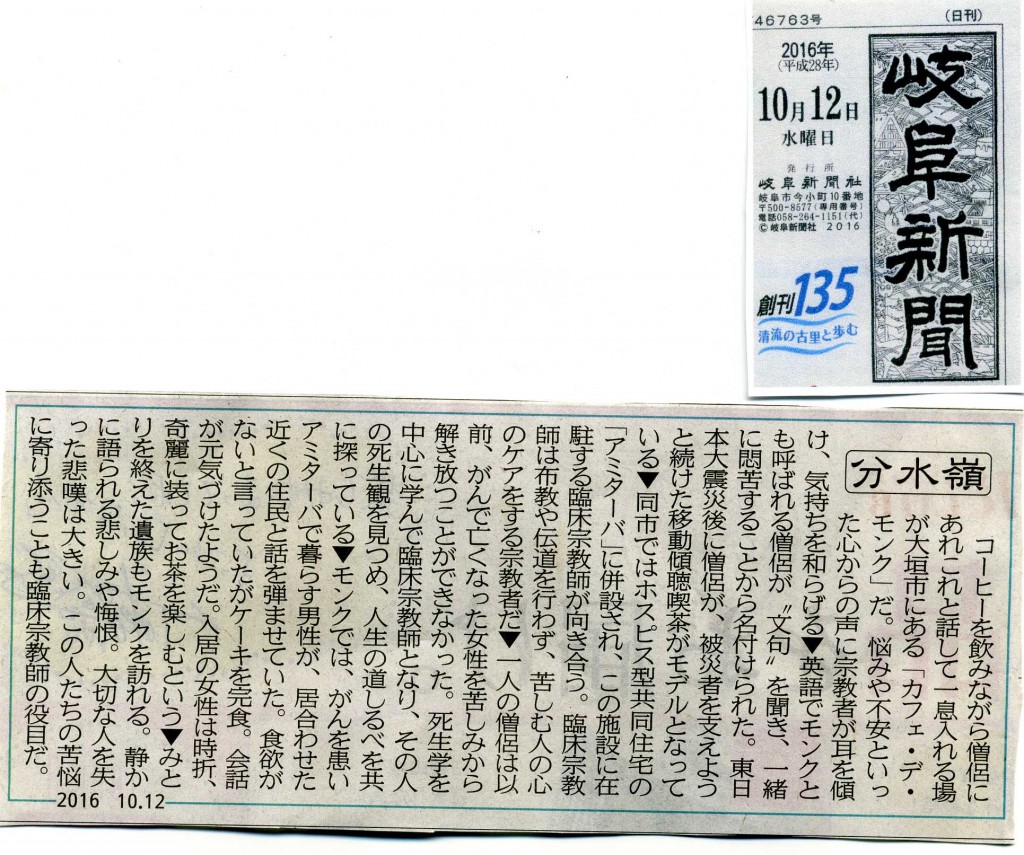 46763号
(日刊)
2016年
(平成28年)
10月12日
水曜日
発行所
岐阜新聞社
岐阜市今小町10番地
〒500-8577(専用番号)
電話058-264-1151(代)
©岐阜新聞社 2016
創刊135
清流の古里と歩む
岐阜新聞
分水嶺
コーヒーを飲みながら僧侶に
あれこれと話して一息入れる場
が大垣市にある「カフェ・デ・
モンク」だ。悩みや不安といっ
た心からの声に宗教者が耳を傾
け、気持ちを和らげる▼英語でモンクと
も呼ばれる僧侶が〝文句〟を聞き、一緒
に悶苦することから名付けられた。東日
本大震災後に僧侶が、被災者を支えよう
と続けた移動傾聴喫茶がモデルとなって
いる▼同市ではホスピス型共同住宅の
「アミターバ」に併設され、この施設に在
駐する臨床宗教師が向き合う。臨床宗教
師は布教や伝道を行わず、苦しむ人の心
のケアをする宗教者だ▼一人の僧侶は以
前、がんで亡くなった女性を苦しみから
解き放つことができなかった。死生学を
中心に学んで臨床宗教師となり、その人
の死生観を見つめ、人生の道しるべを共
に探っている▼モンクでは、がんを患い
アミターバで暮らす男性が、居合わせた
近くの住民と話を弾ませていた。食欲が
ないと言っていたがケーキを完食。会話
が元気づけたようだ。入居の女性は時折、
奇麗に装ってお茶を楽しむという▼みと
りを終えた遺族もモンクを訪れる。静か
に語られる悲しみや悔恨。大切な人を失
った悲嘆は大きい。この人たちの苦悩
に寄り添うことも臨床宗教師の役目だ。
2016 10.12